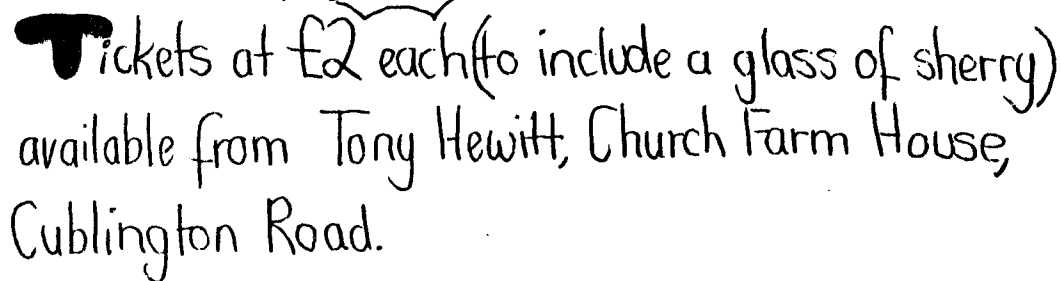 Tickets at £2 each (to include a glass of sherry)
available from Tony Hewitt, Church Farm House,
Cublington Road.